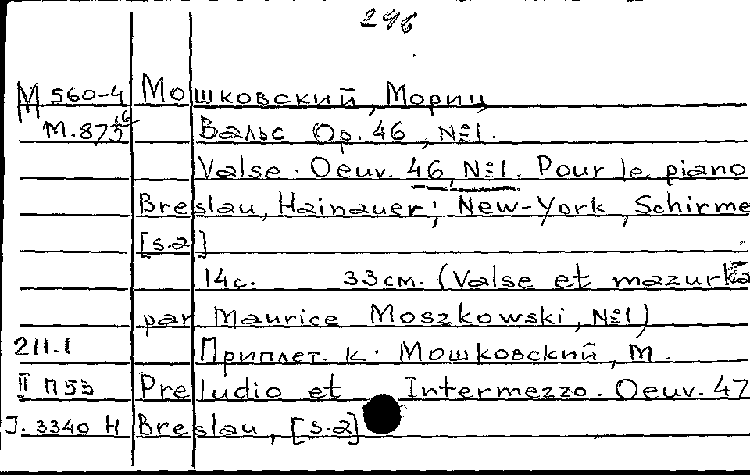 296
М 560-4 Мошковский, Мориц
М.873 Вальс Op. 46, №1.
Valse. Oeuv. 46, №1. Pour le piano
Breslau, Hainauer; New-York, Schirme
[s.a]
14с. 33см. (Valse et mazurka
par Maurice Moszkowski, №1)
211.1 Приплет. к. Мошковский, М.
II П53 Preludio et Intermezzo. Oeuv. 47
J. 3340 Н Breslau, [s.a]